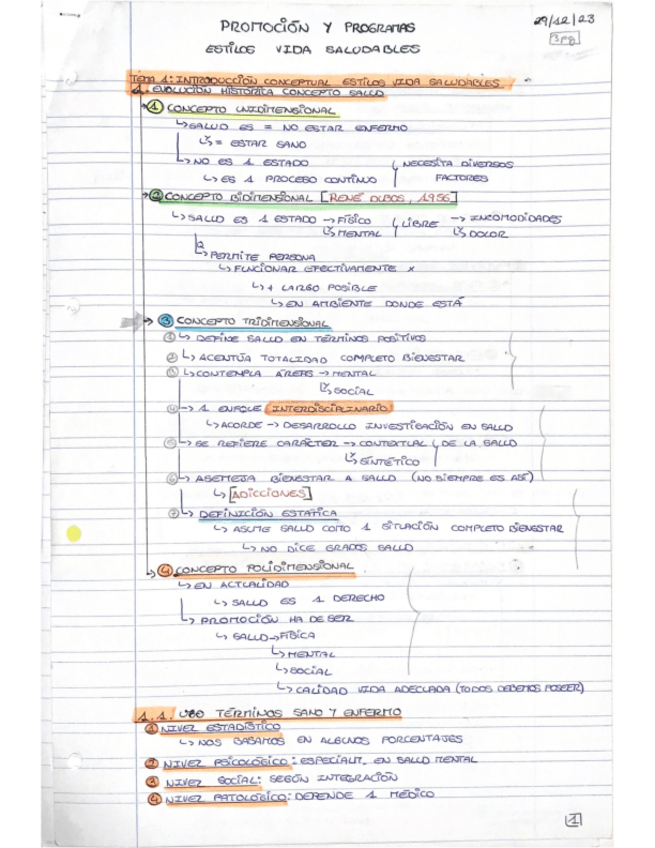 PROMOCIÓN Y PROGRAMAS
29/12/23
3pg
ESTILOS VIDA SALUDABLES
TEMA 1: INTRODUCCIÓN CONCEPTUAL ESTILOS VIDA SALUDABLES
1. EVOLUCIÓN HISTÓRICA CONCEPTO SALUD
→① CONCEPTO UNIDIMENSIONAL
↳ SALUD ES = NO ESTAR ENFERMO
↳ = ESTAR SANO
↳ NO ES 1 ESTADO { NECESITA DIVERSOS
↳ ES 1 PROCESO CONTINUO FACTORES
→② CONCEPTO BIDIMENSIONAL [RENÉ DUBOS, 1956]
↳ SALUD ES 1 ESTADO → FÍSICO { LIBRE → INCOMODIDADES
↳ MENTAL ↳ DOLOR
↳ PERMITE PERSONA
↳ FUNCIONAR EFECTIVAMENTE X
↳ + LARGO POSIBLE
↳ EN AMBIENTE DONDE ESTÁ
→ ③ CONCEPTO TRIDIMENSIONAL
① ↳ DEFINE SALUD EN TÉRMINOS POSITIVOS
② ↳ ACENTÚA TOTALIDAD COMPLETO BIENESTAR
③ ↳ CONTEMPLA ÁREAS → MENTAL
↳ SOCIAL
④ → 1 ENFOQUE INTERDISCIPLINARIO
↳ ACORDE → DESARROLLO INVESTIGACIÓN EN SALUD
⑤ ↳ SE REFIERE CARÁCTER → CONTEXTUAL { DE LA SALUD
↳ SINTÉTICO
⑥ ↳ ASEMEJA BIENESTAR A SALUD (NO SIEMPRE ES ASÍ)
↳ [ADICCIONES]
⑦ ↳ DEFINICIÓN ESTÁTICA
↳ ASUME SALUD COMO 1 SITUACIÓN COMPLETO BIENESTAR
↳ NO DICE GRADOS SALUD
↳ ④ CONCEPTO POLIDIMENSIONAL
↳ EN ACTUALIDAD
↳ SALUD ES 1 DERECHO
↳ PROMOCIÓN HA DE SER
↳ SALUD → FÍSICA
↳ MENTAL
↳ SOCIAL
↳ CALIDAD VIDA ADECUADA (TODOS DEBEMOS POSEER)
1.1. USO TÉRMINOS SANO Y ENFERMO
① NIVEL ESTADÍSTICO
↳ NOS BASAMOS EN ALGUNOS PORCENTAJES
② NIVEL PSICOLÓGICO: ESPECIALIT. EN SALUD MENTAL
③ NIVEL SOCIAL: SEGÚN INTEGRACIÓN
④ NIVEL PATOLÓGICO: DEPENDE 1 MÉDICO
1